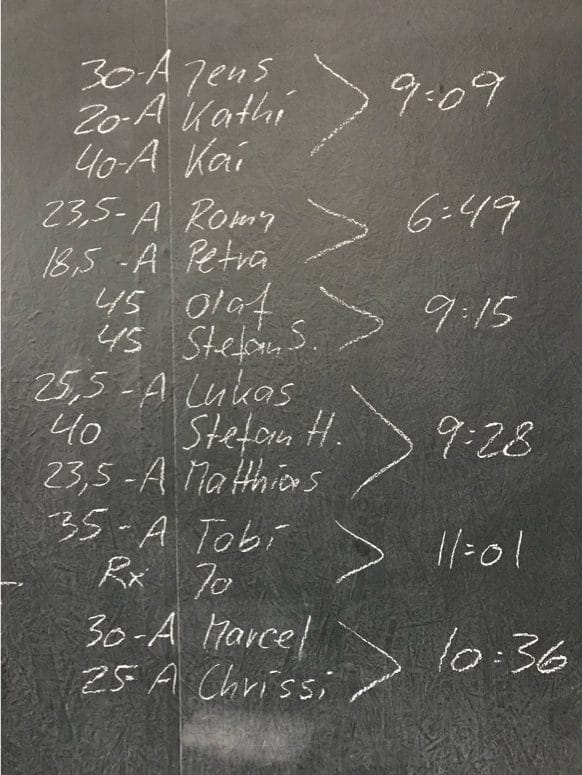 30-A Jens
20-A Kathi
40-A Kai
9:09
23,5-A Romy
18,5-A Petra
6:49
45 Olaf
45 Stefan S.
9:15
25,5-A Lukas
40 Stefan H.
23,5-A Matthias
9:28
35-A Tobi
Rx Jo
11:01
30-A Marcel
25-A Chrissi
10:36